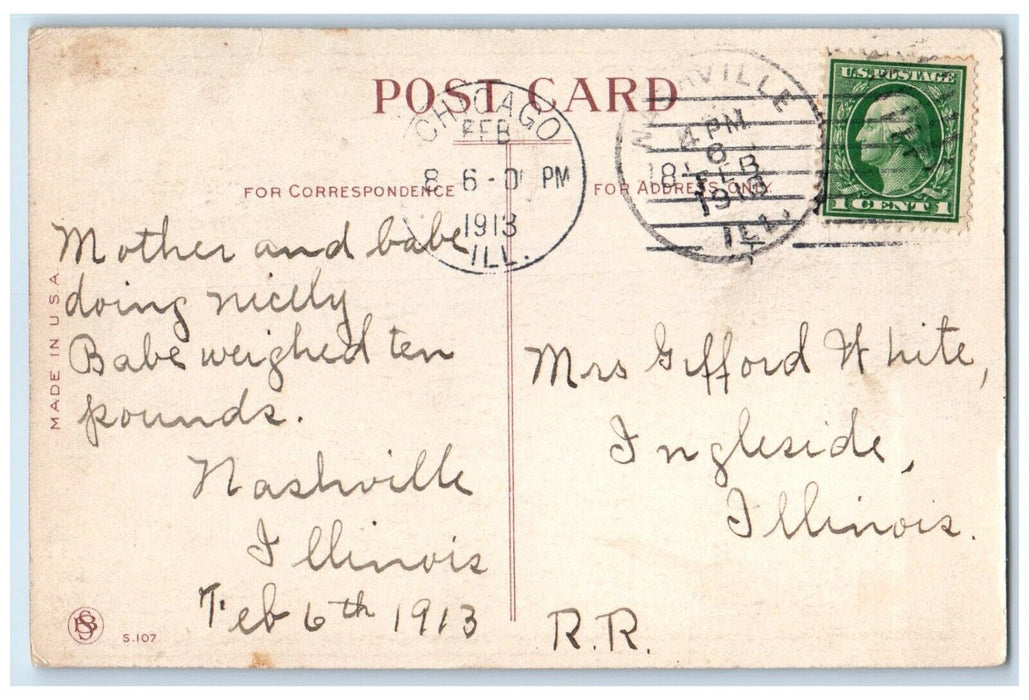 POST CARD
CHICAGO
FEB
8 6-0 PM
1913
ILL.
NASHVILLE
4 PM
FEB
1913
ILL.
U.S. POSTAGE
1 CENT 1
FOR CORRESPONDENCE
FOR ADDRESS ONLY
Mother and babe
doing nicely
Babe weighed ten
pounds.
Nashville
Illinois
Feb 6th 1913
Mrs Gifford White,
Ingleside,
Illinois.
R.R.
MADE IN U.S.A.
S.107